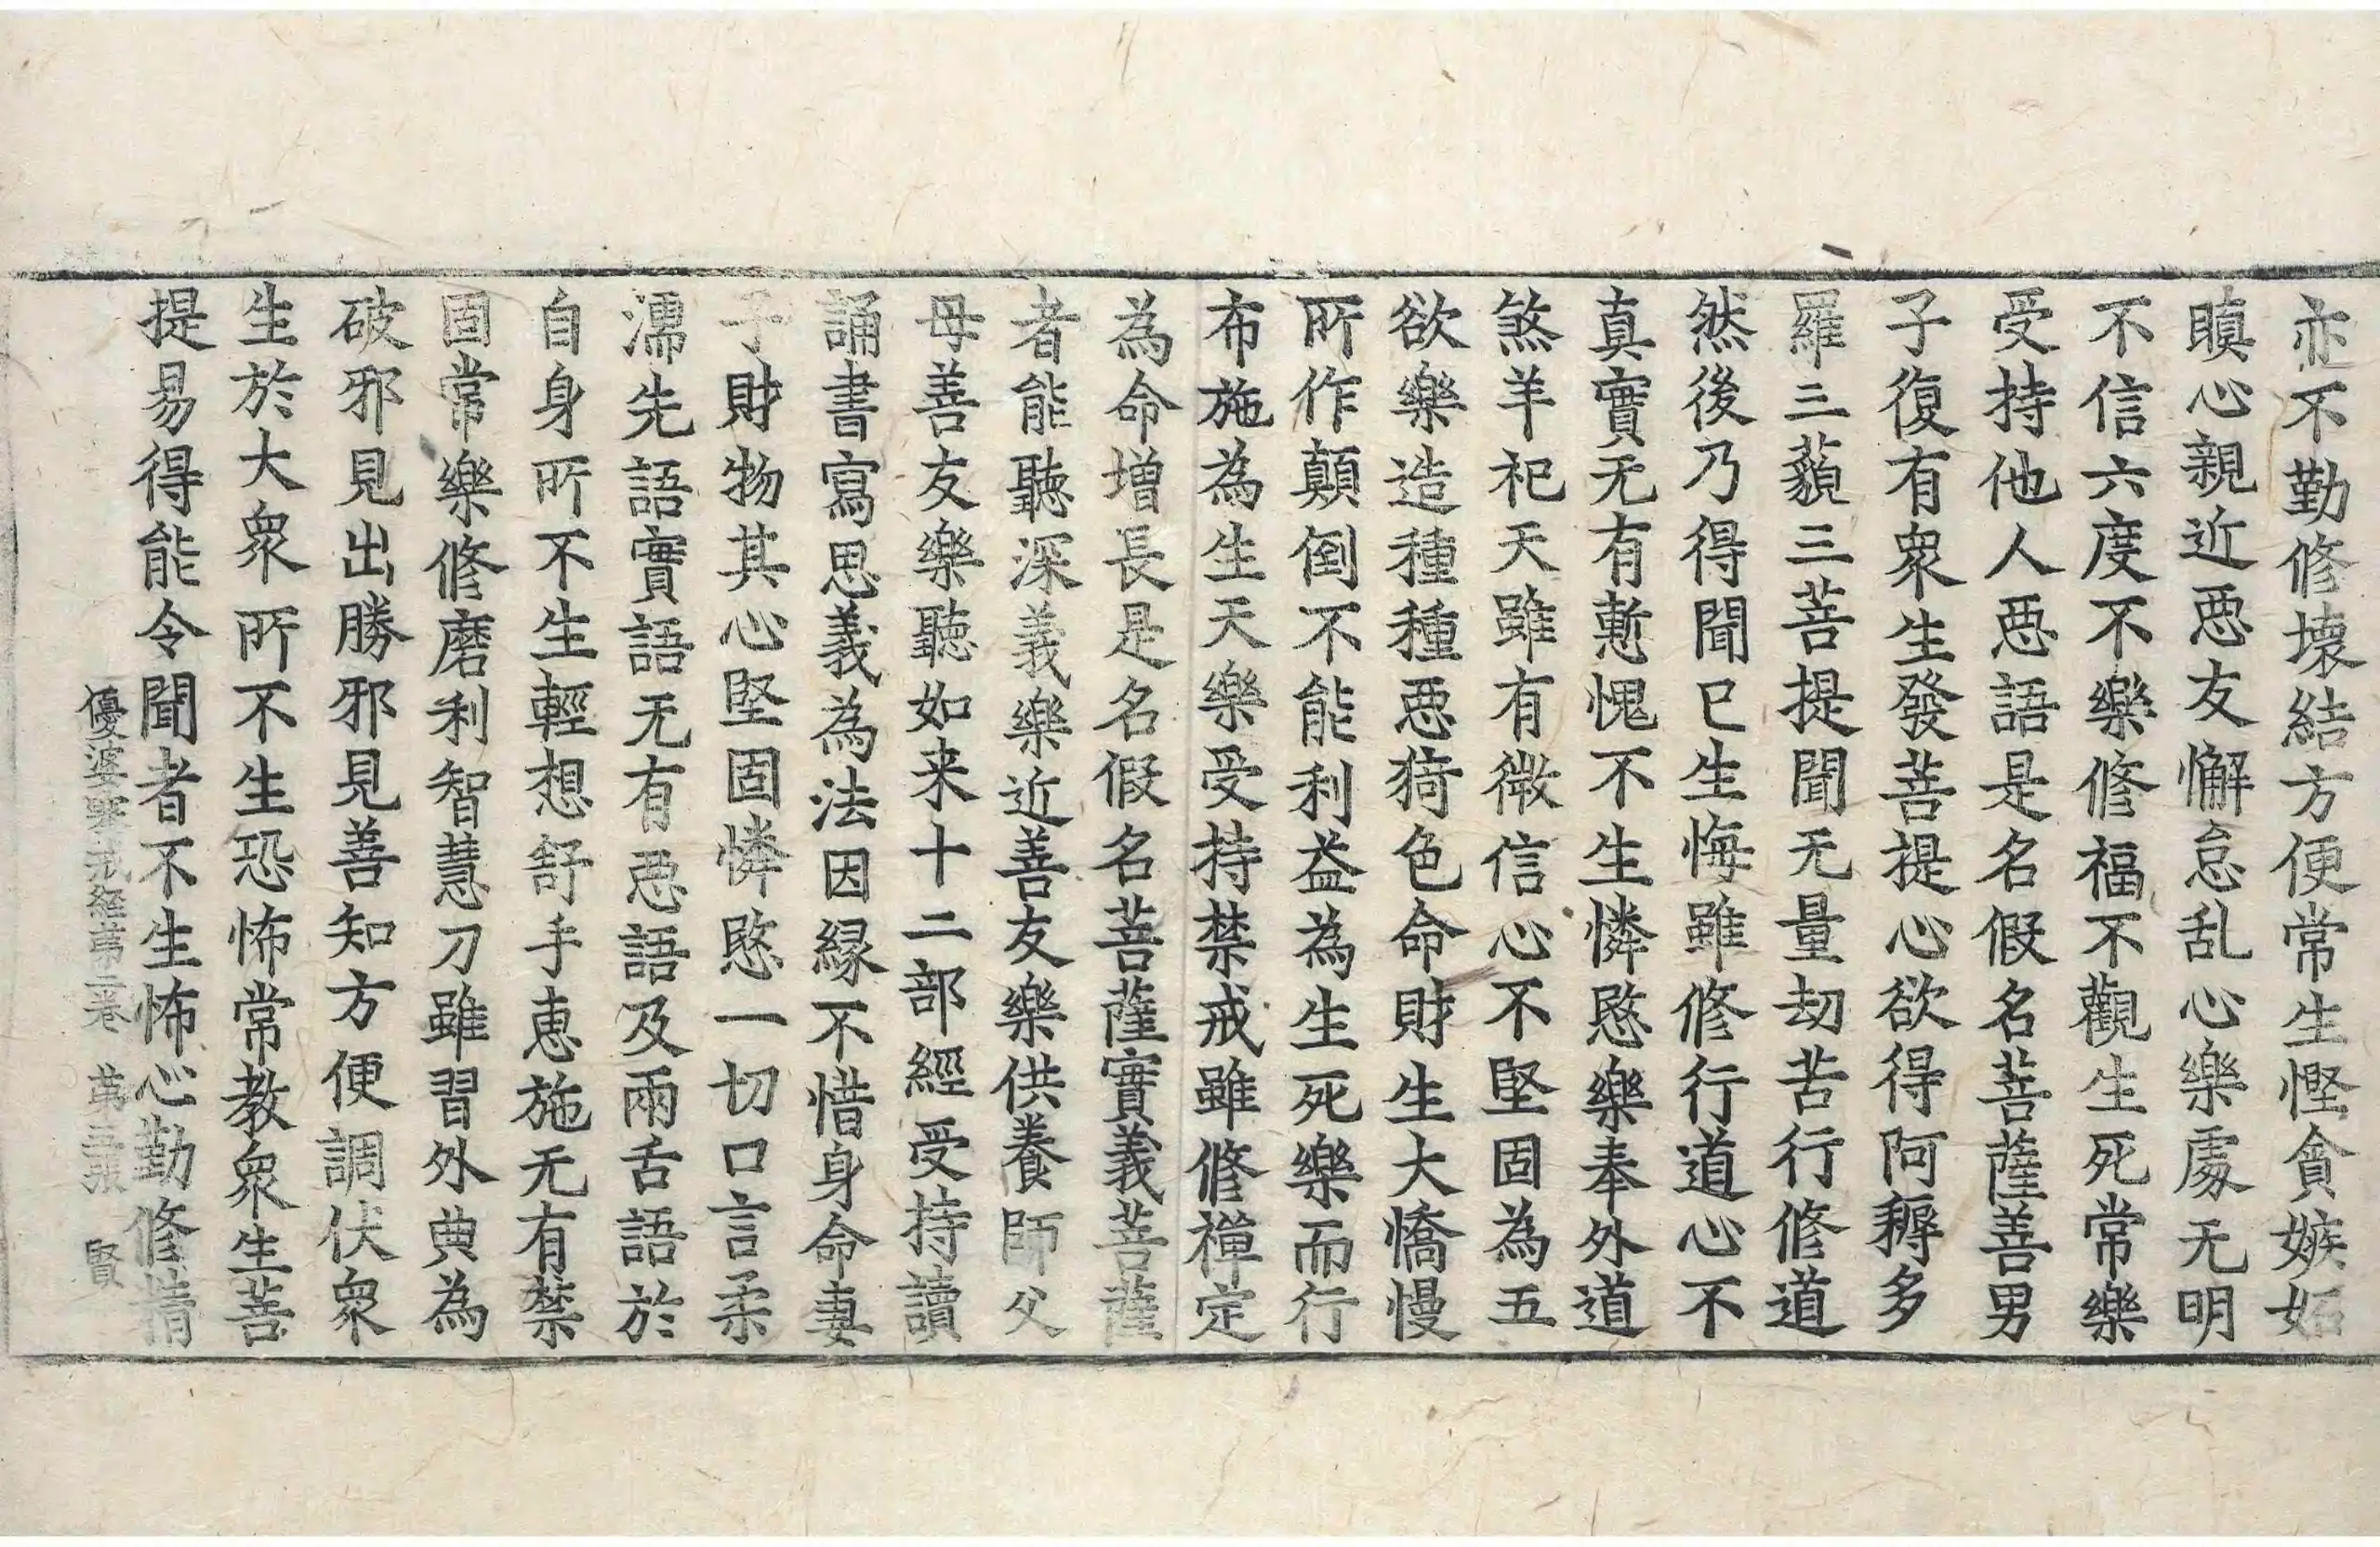 亦不勤修壞結方便常生慳貪嫉妬
瞋心親近惡友懈怠乱心樂處无明
不信六度不樂修福不觀生死常樂
受持他人惡語是名假名菩薩善男
子復有衆生發菩提心欲得阿耨多
羅三藐三菩提聞无量劫苦行修道
然後乃得聞已生悔雖修行道心不
真實无有慙愧不生憐愍樂奉外道
煞羊祀天雖有微信心不堅固為五
欲樂造種種惡猗色命財生大憍慢
所作顛倒不能利益為生死樂而行
布施為生天樂受持禁戒雖修禪定
為命增長是名假名菩薩實義菩薩
者能聽深義樂近善友樂供養師父
母善友樂聽如来十二部經受持讀
誦書寫思義為法因緣不惜身命妻
子財物其心堅固憐愍一切口言柔
濡先語實語无有惡語及兩舌語於
自身所不生輕想舒手恵施无有禁
固常樂修磨利智慧刀雖習外典為
破邪見出勝邪見善知方便調伏衆
生於大衆所不生恐怖常教衆生菩
提易得能令聞者不生怖心勤修精
優婆塞戒経第二卷 第三張 賢